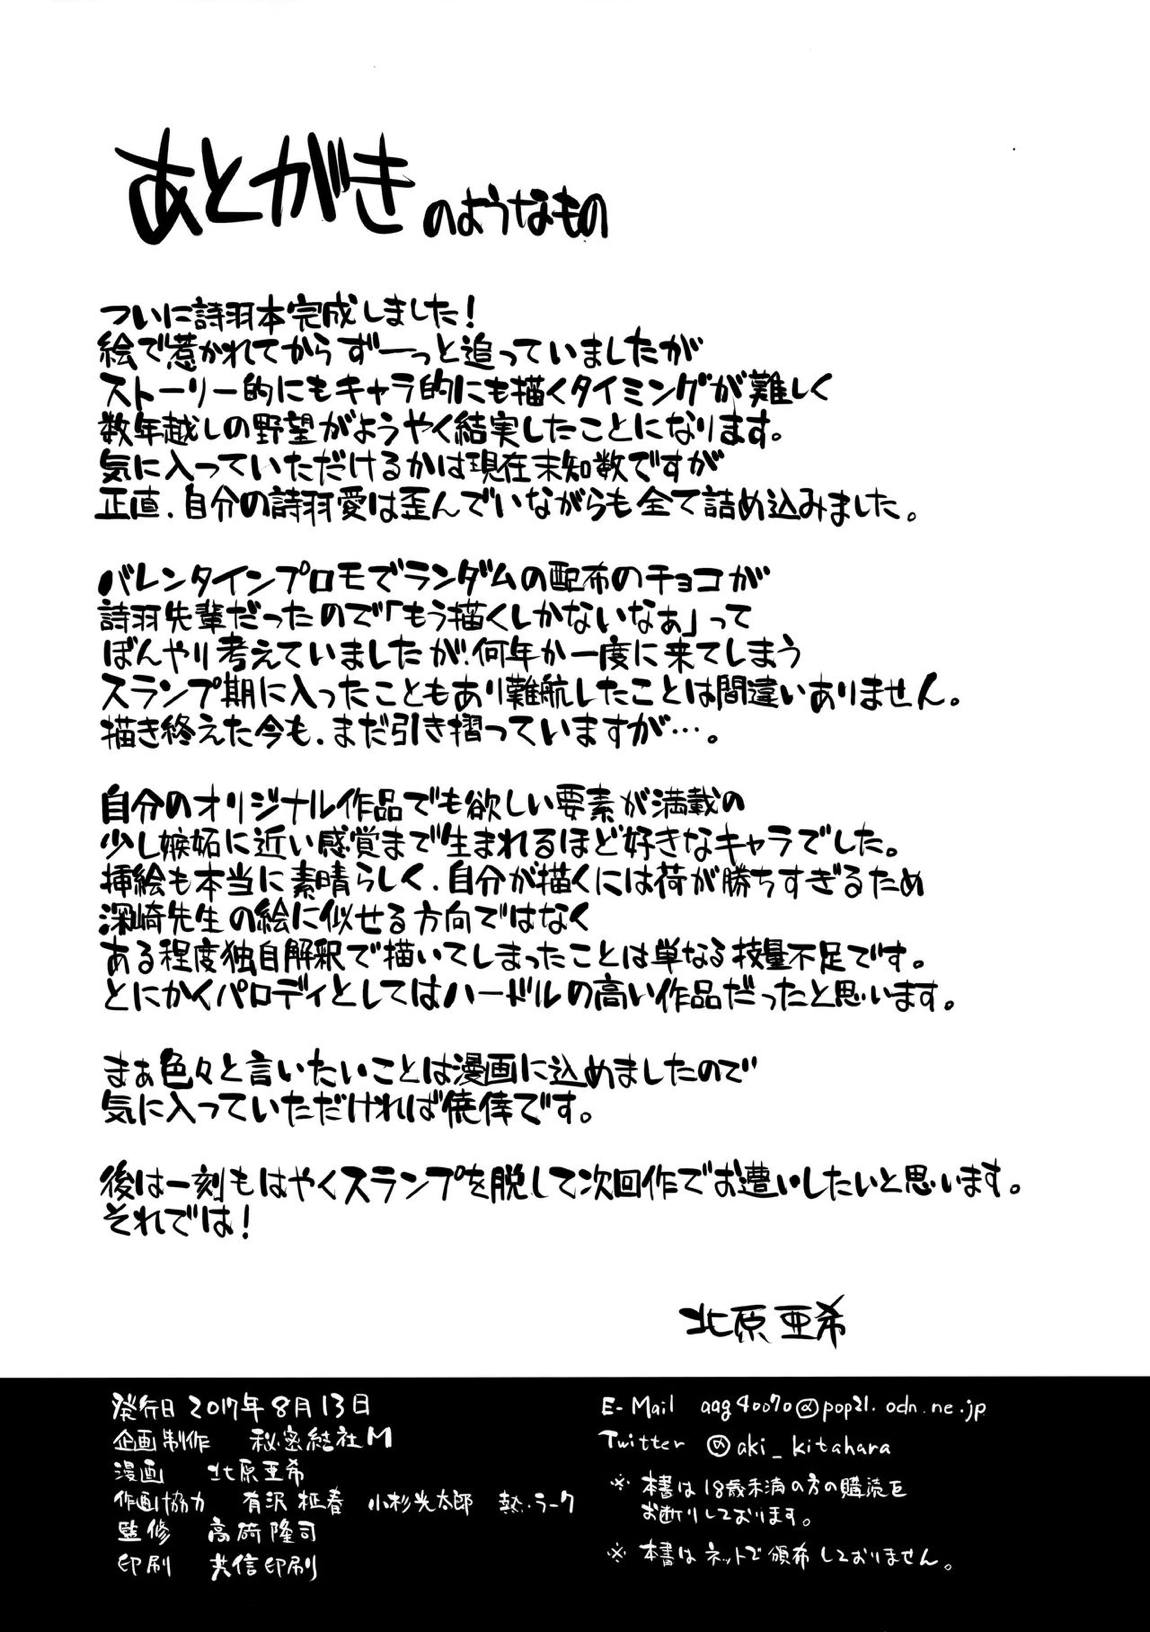 あとがきのようなもの
ついに詩羽本完成しました!
絵で惹かれてからずーっと追っていましたが
ストーリー的にもキャラ的にも描くタイミングが難しく
数年越しの野望がようやく結実したことになります。
気に入っていただけるかは現在未知数ですが
正直、自分の詩羽愛は歪んでいながらも全て詰め込みました。
バレンタインプロモでランダムの配布のチョコが
詩羽先輩だったので「もう描くしかないなぁ」って
ぼんやり考えていましたが、何年か一度に来てしまう
スランプ期に入ったこともあり難航したことは間違いありません。
描き終えた今も、まだ引き摺っていますが…。
自分のオリジナル作品でも欲しい要素が満載の
少し嫉妬に近い感覚まで生まれるほど好きなキャラでした。
挿絵も本当に素晴らしく、自分が描くには荷が勝ちすぎるため
深崎先生の絵に似せる方向ではなく
ある程度独自解釈で描いてしまったことは単なる技量不足です。
とにかくパロディとしてはハードルの高い作品だったと思います。
まぁ色々と言いたいことは漫画に込めましたので
気に入っていただければ僥倖です。
後は一刻もはやくスランプを脱して次回作でお遭いしたいと思います。
それでは!
北原亜希
発行日 2017年8月13日
企画制作 秘密結社M
漫画 北原亜希
作画協力 有沢 柾春 小杉光太郎 熱・ラーク
監修 高崎隆司
印刷 共信印刷
E-Mail aag40070@pop21.odn.ne.jp
Twitter @aki_kitahara
※本書は18歳未満の方の購読を
お断りしております。
※本書はネットで頒布しておりません。